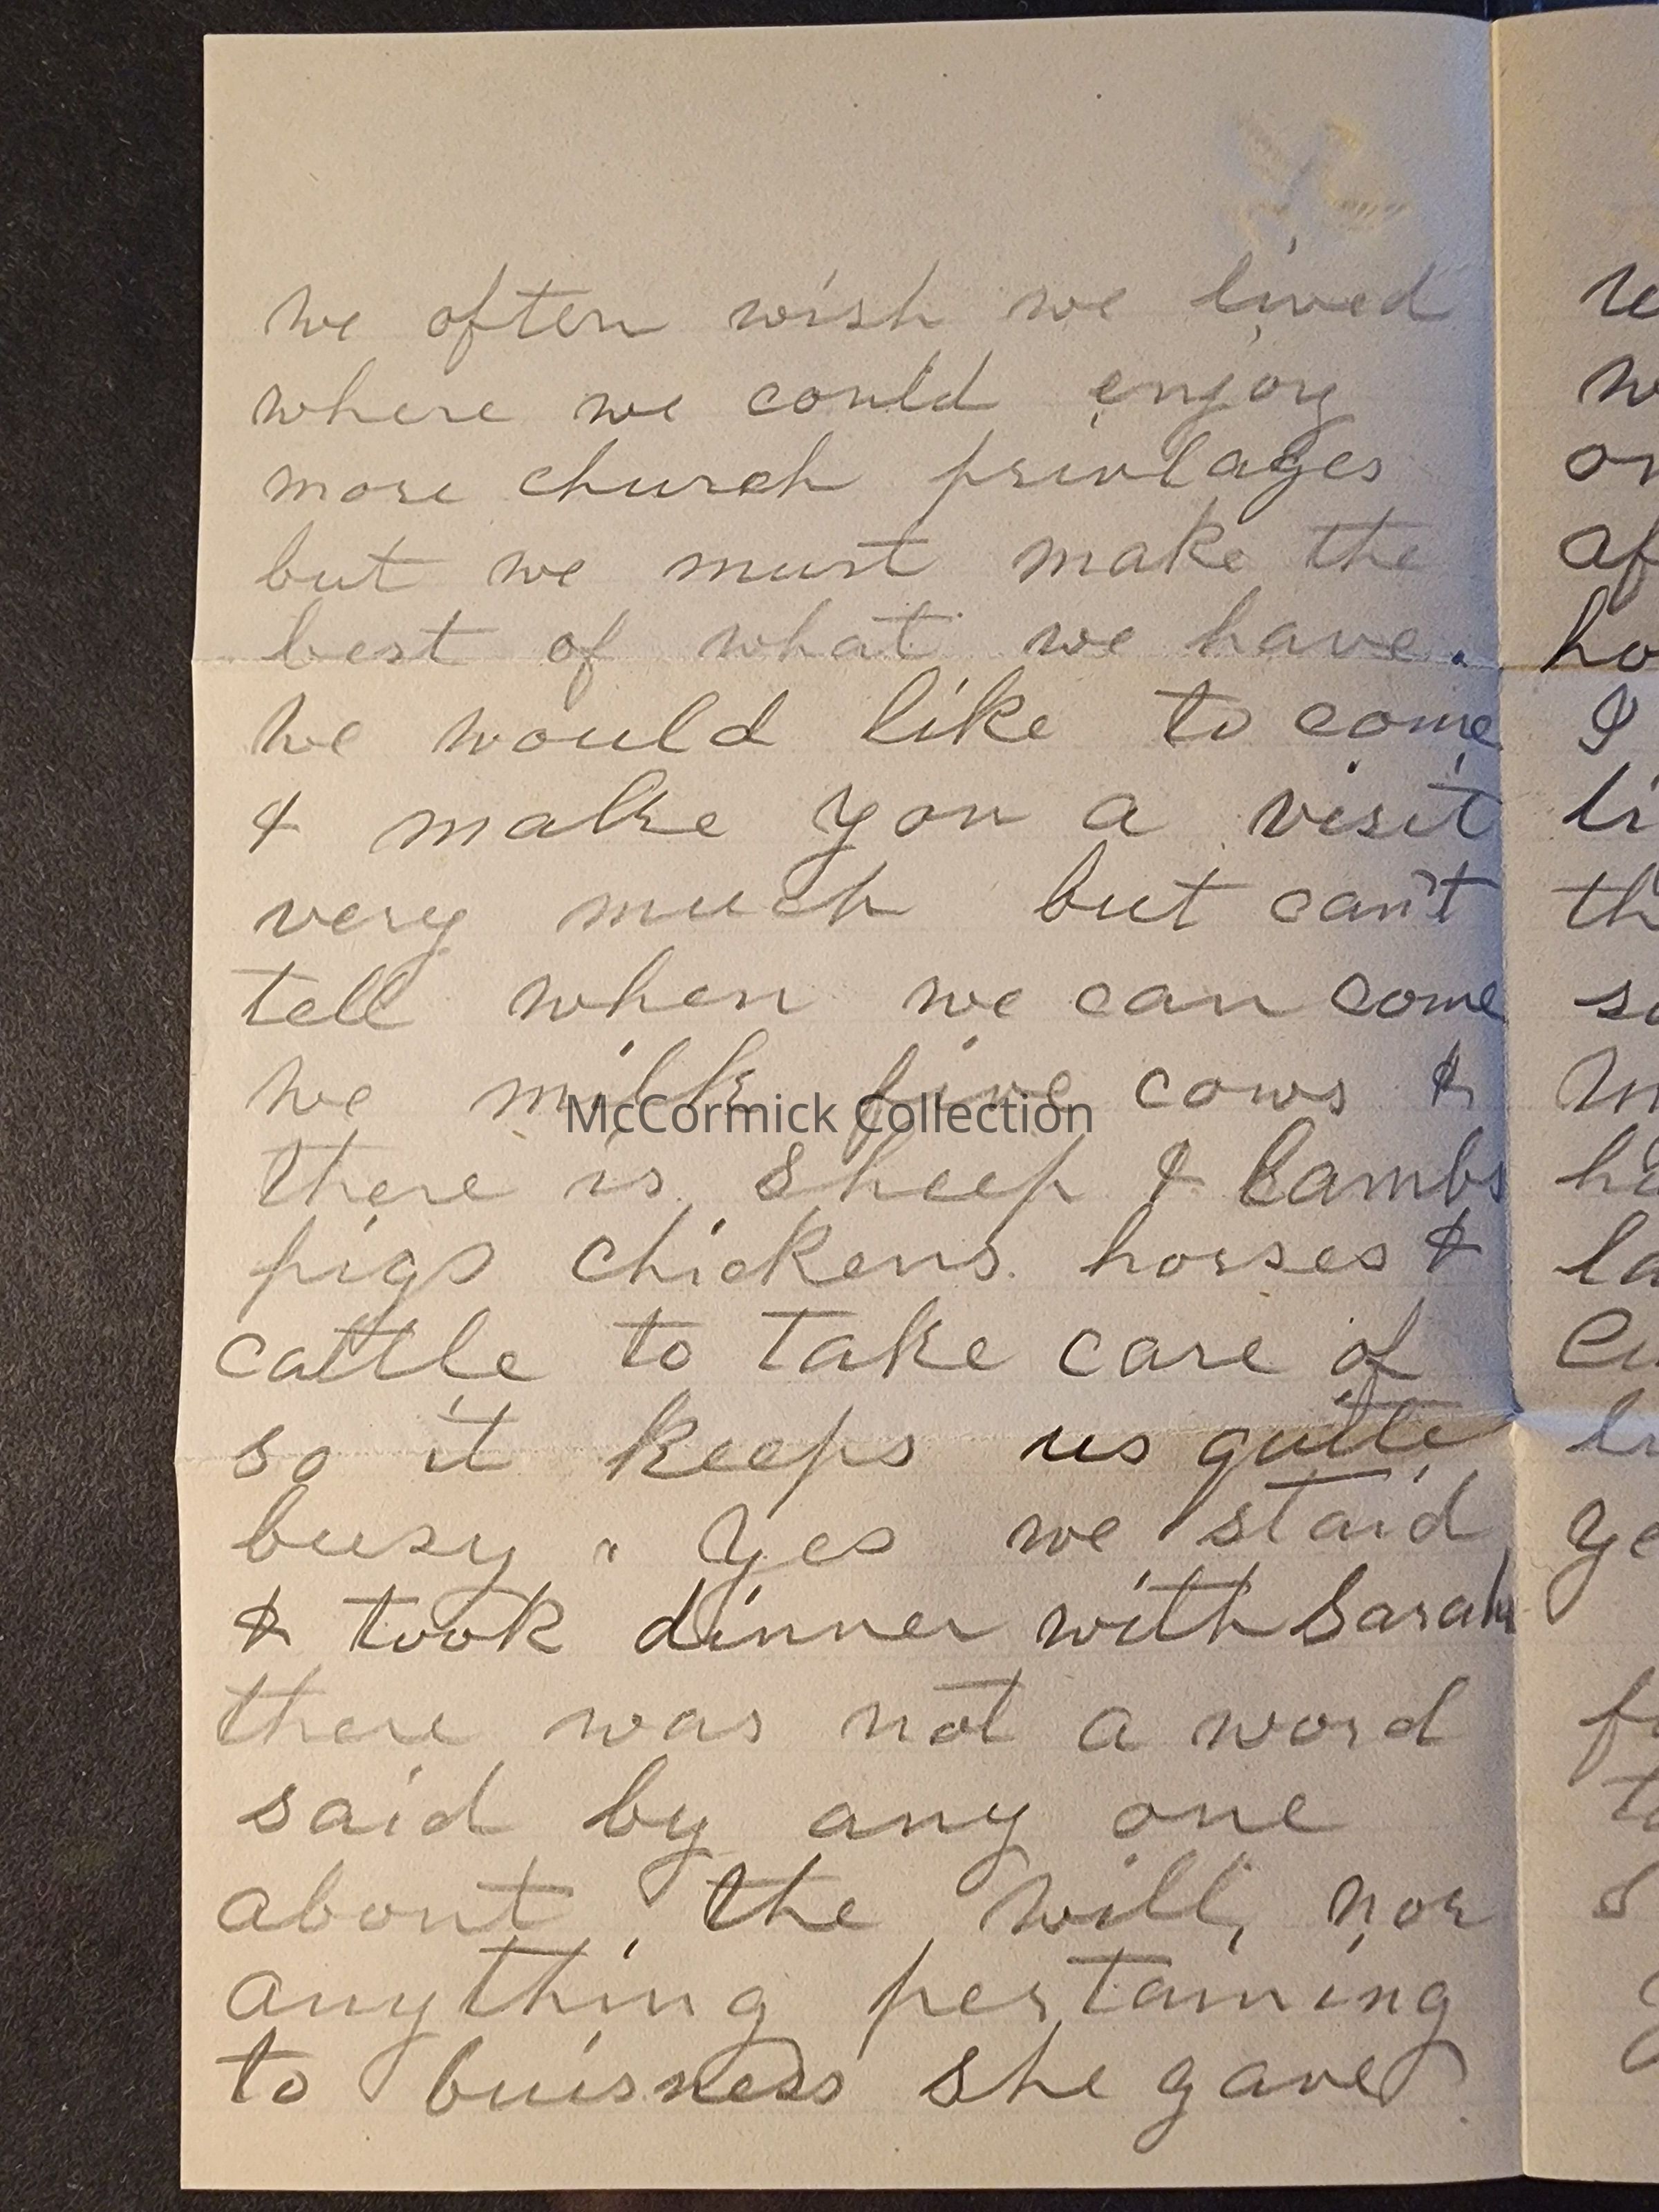 we often wish we lived
where we could enjoy
more church privlages
but we must make the
best of what we have.
we would like to come
& make you a visit
very much but can't
tell when we can come
we milk five cows &
McCormick Collection
there is sheep & lambs
pigs chickens. horses &
cattle to take care of
so it keeps us quite
busy. Yes we staid
& took dinner with Sarah
there was not a word
said by any one
about the will, nor
anything pertaining
to buisness she gave